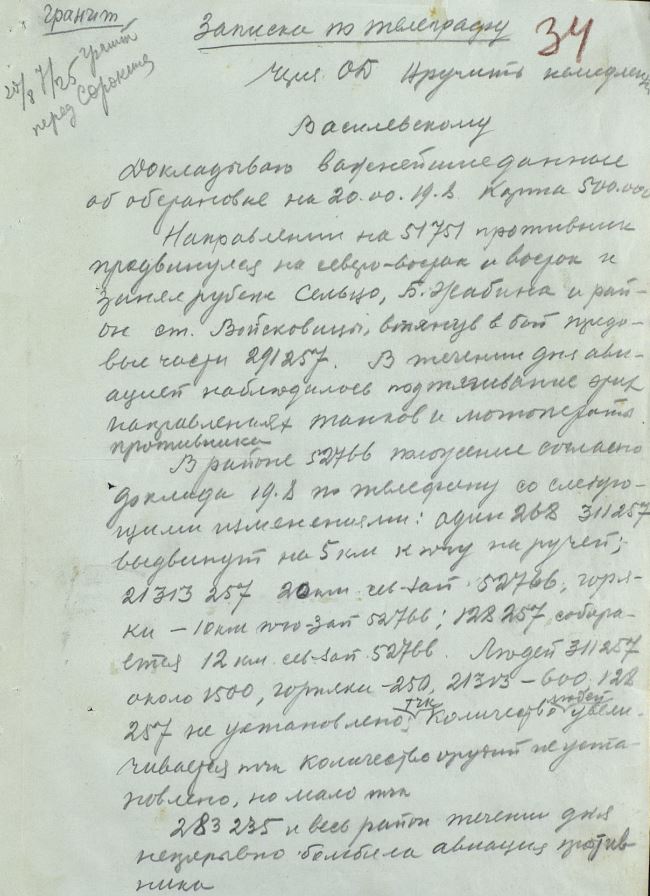 гранит
Записка по телеграфу
34
25/8 7/25 гранит
перед Сорокина
ОБ Вручить немедленно
Василевскому
Докладываю важнейшие данные
об обстановке на 20.00. 19.8. Карта 500.000
Направлении на 51751 противник
продвинулся на северо-восток и восток и
занял рубеж Сельцо, Б. Жабина и рай-
он ст. Войсковицы, втянув в бой передо-
вые части 291257. В течении дня ави-
ацией наблюдалось подтягивание этих
направлениях танков и мотопехоты
противника
В районе 52766 положение согласно
доклада 19.8 по телефону со следую-
щими изменениями: один 268 311257
выдвинут на 5 км к югу на ручей;
21313 257 20 км сев-зап 52766, горя-
ки – 10 км юго-зап 52766; 128 257 собира-
ется 12 км сев-зап 52766. Людей 311257
около 1500, горялки – 250, 21313 – 600, 128
257 не установлено тчк Количество людей увели-
чивается тчк Количество орудий не уста-
новлено, но мало тчк
283235 и весь район течении дня
непрерывно бомбила авиация против-
ника